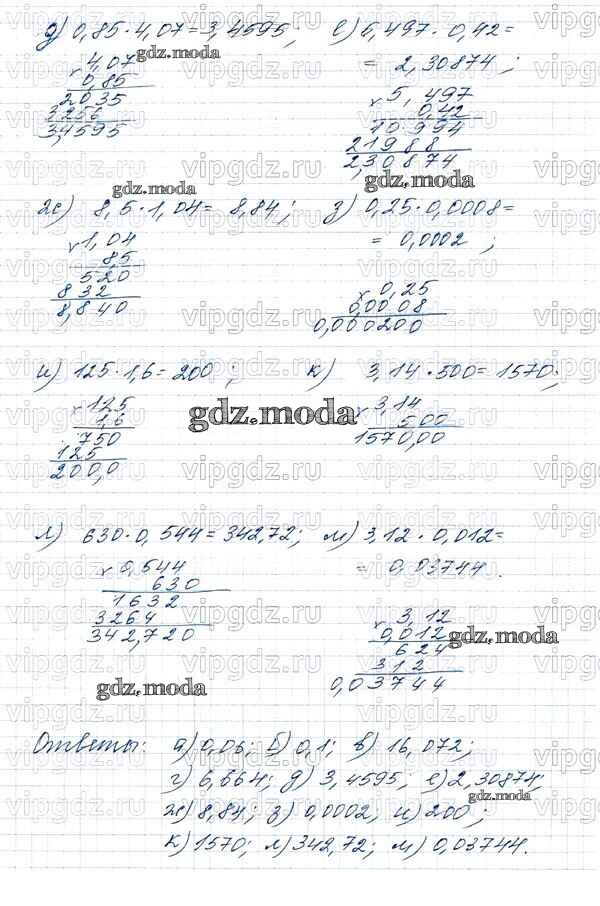 д) 0,85 · 4,07 = 3,4595;
4,07
0,85
2035
3256
3,4595
е) 5,497 · 0,42 =
= 2,30874;
5,497
0,42
10994
21988
2,30874
ж) 8,5 · 1,04 = 8,84;
1,04
8,5
520
832
8,840
з) 0,25 · 0,0008 =
= 0,0002;
0,25
0,0008
0,000200
и) 125 · 1,6 = 200;
125
1,6
750
125
200,0
к) 3,14 · 500 = 1570;
3,14
500
1570,00
л) 630 · 0,544 = 342,72;
0,544
630
1632
3264
342,720
м) 3,12 · 0,012 =
= 0,03744.
3,12
0,012
624
312
0,03744
Ответы: а) 0,06; б) 0,1; в) 16,072;
г) 6,664; д) 3,4595; е) 2,30874;
ж) 8,84; з) 0,0002; и) 200;
к) 1570; л) 342,72; м) 0,03744.
gdz.moda
vipgdz.ru